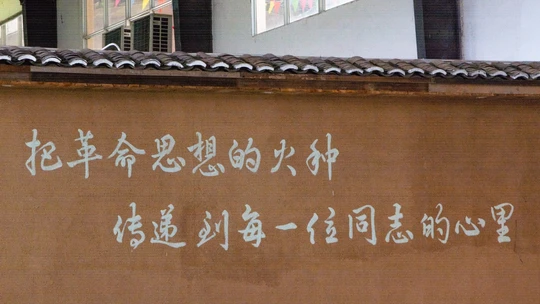 把革命思想的火种
传递到每一位同志的心里